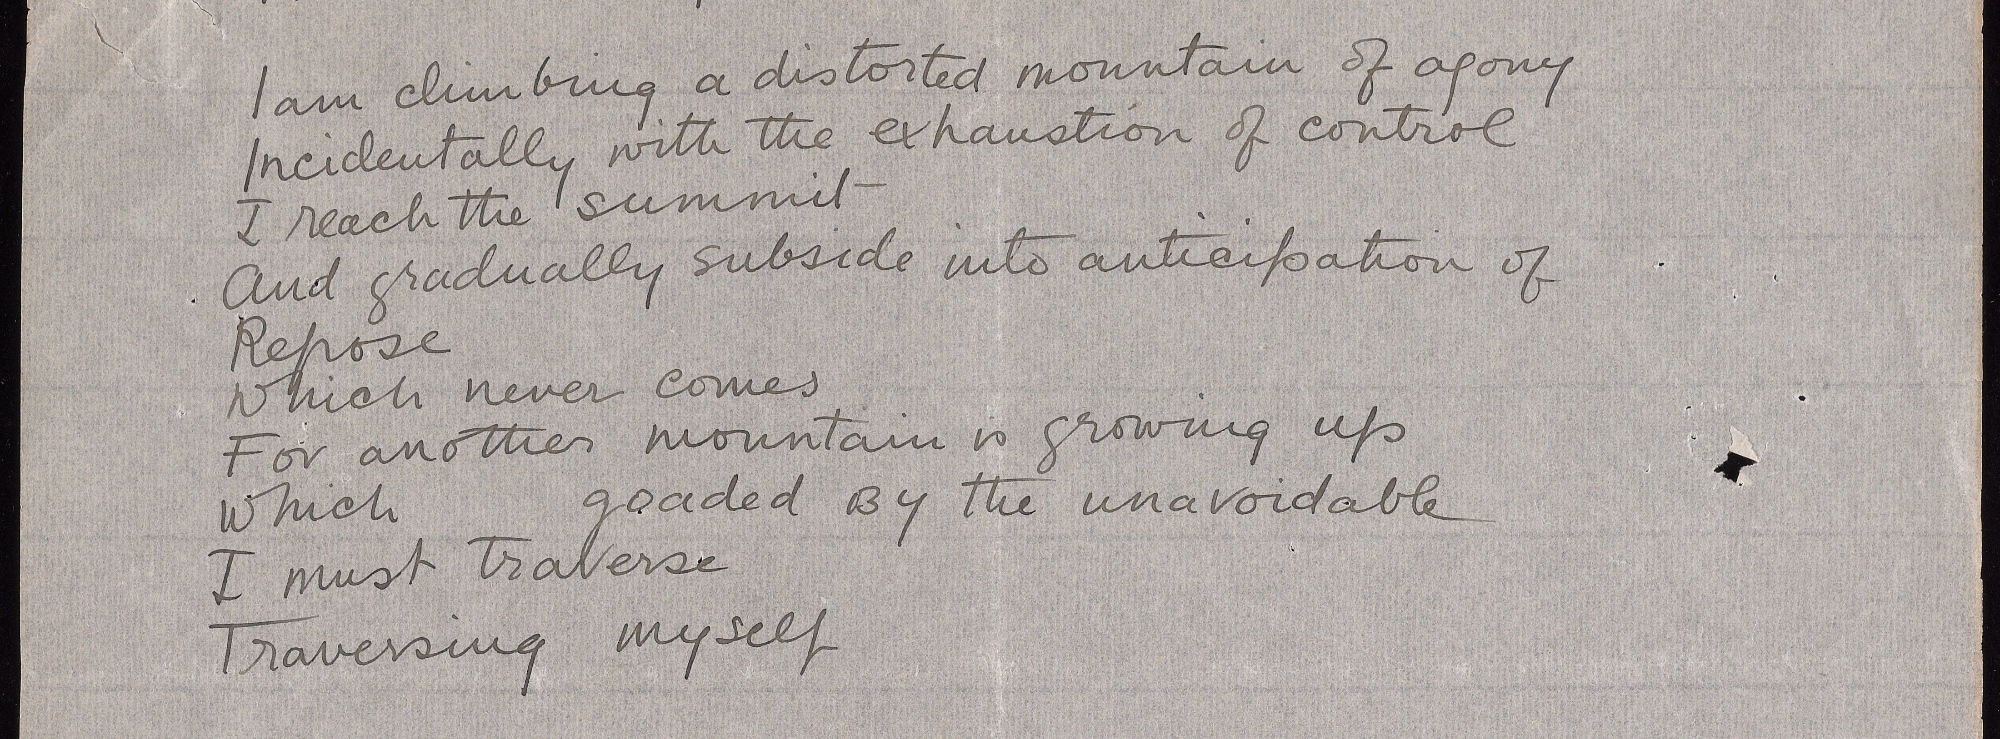 I am climbing a distorted mountain of agony
Incidentally with the exhaustion of control
I reach the summit
And gradually subside into anticipation of
Repose
Which never comes
For another mountain is growing up
Which goaded By the unavoidable
I must traverse
Traversing myself